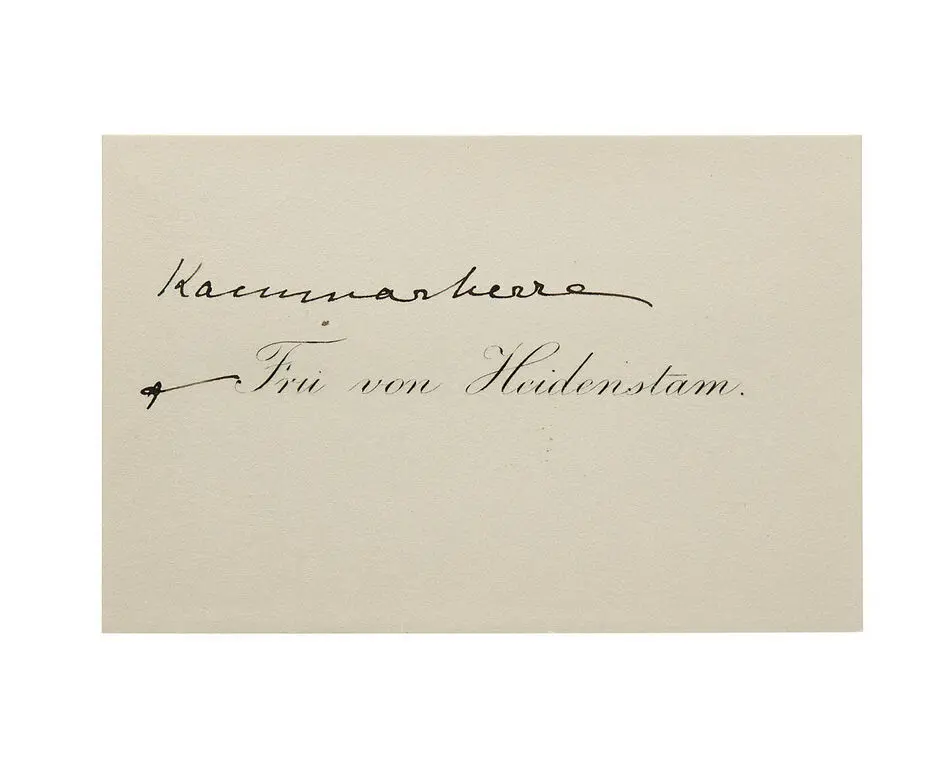 Kammarherre
& Fru von Heidenstam.